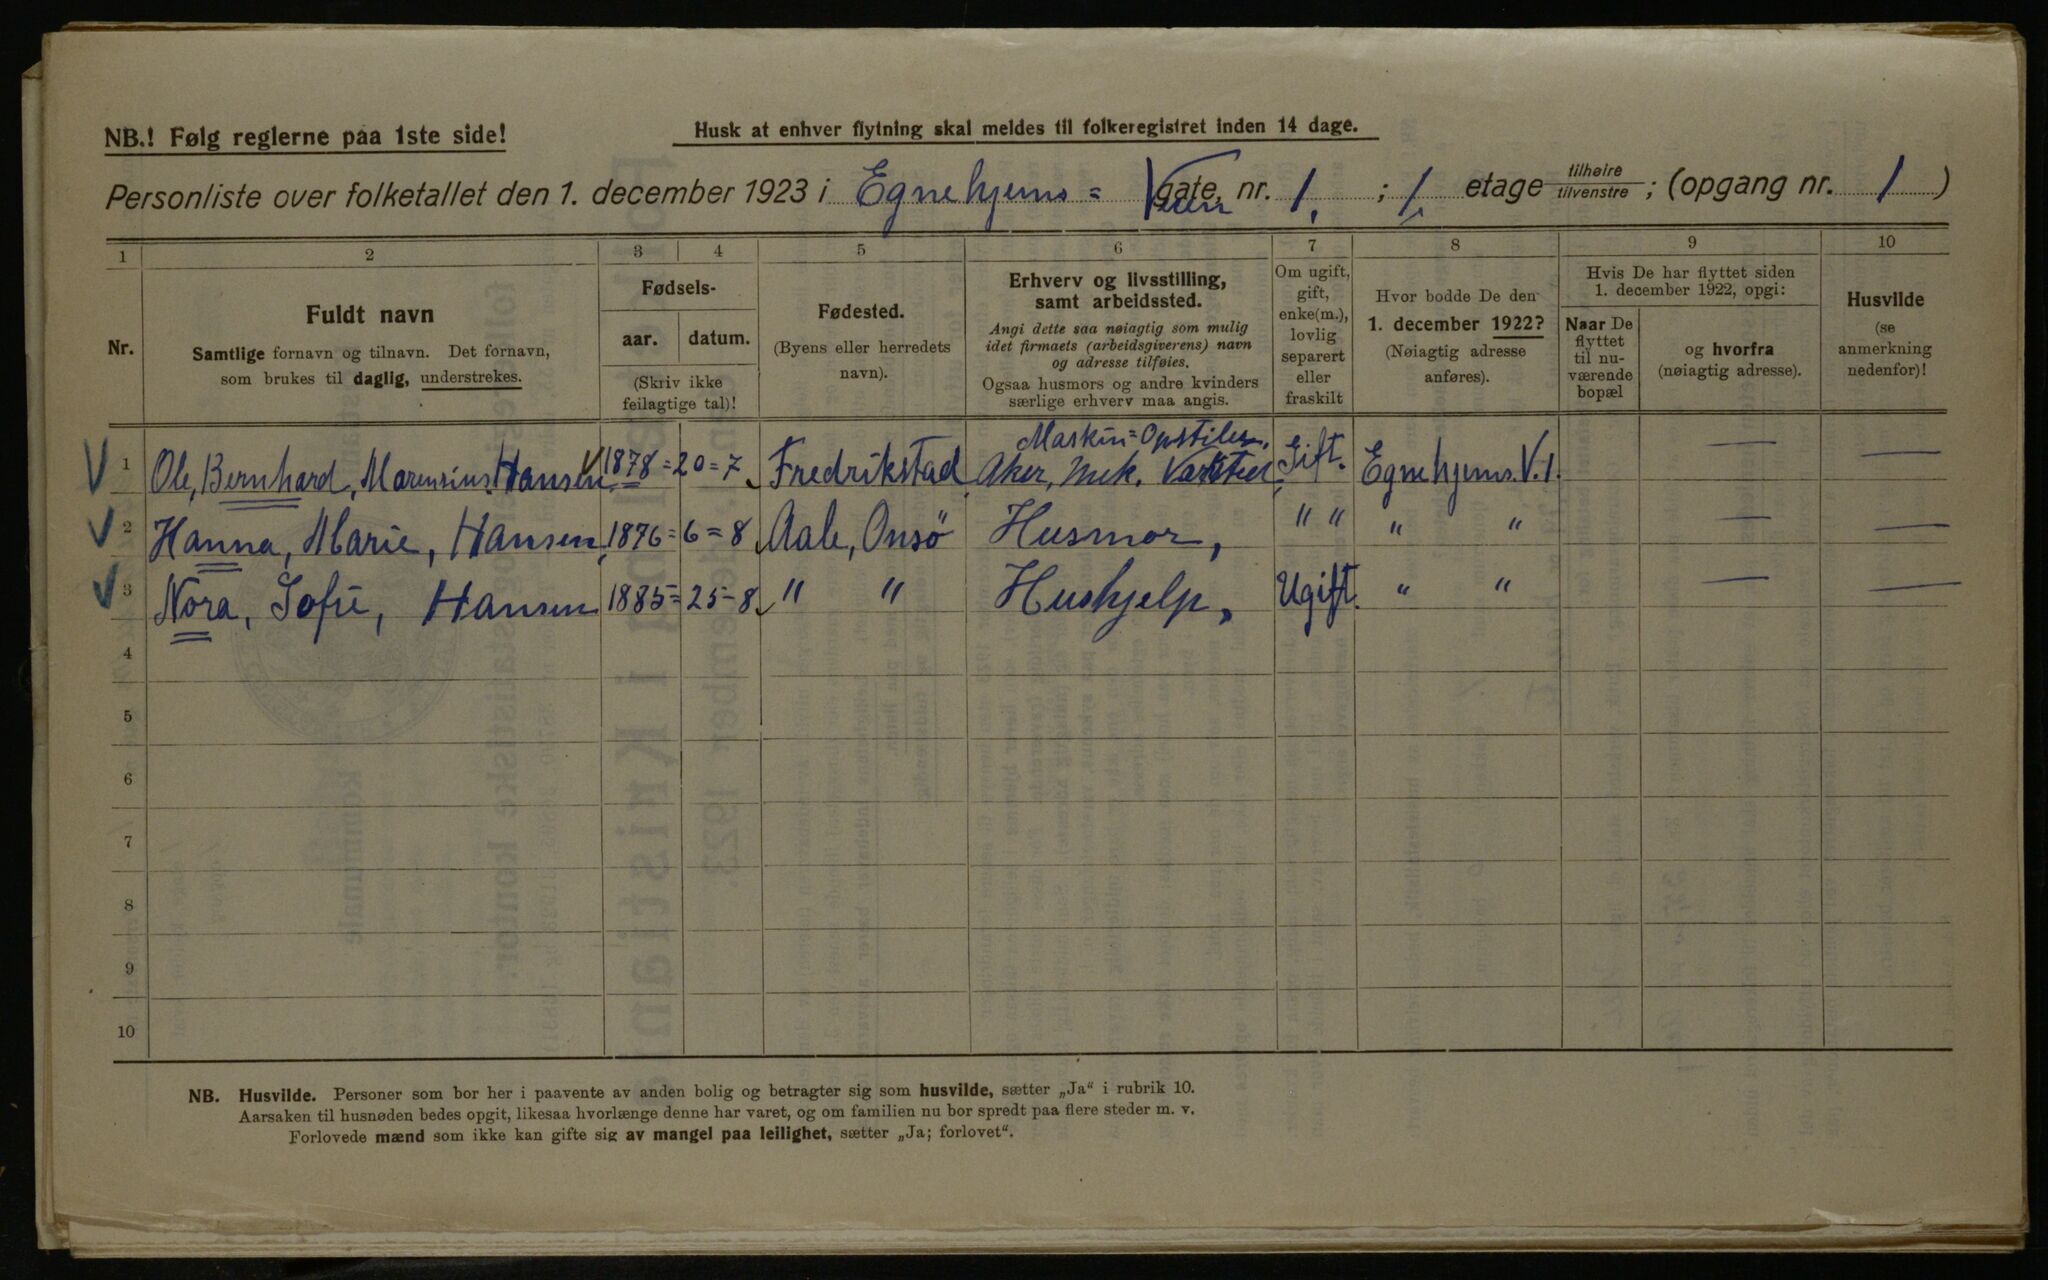 NB.! Følg reglerne paa 1ste side!
Husk at enhver flytning skal meldes til folkeregistret inden 14 dage.
Personliste over folketallet den 1. december 1923 i Egnehjems = Veien gate, nr. 1, ; 1, etage tilhøire tilvenstre ; (opgang nr. 1 )
1 2 3 4 5 6 7 8 9 10
Nr.
Fuldt navn
Samtlige fornavn og tilnavn. Det fornavn,
som brukes til daglig, understrekes.
Fødsels-
aar. datum.
(Skriv ikke
feilagtige tal)!
Fødested.
(Byens eller herredets
navn).
Erhverv og livsstilling,
samt arbeidssted.
Angi dette saa nøiagtig som mulig
idet firmaets (arbeidsgiverens) navn
og adresse tilføies.
Ogsaa husmors og andre kvinders
særlige erhverv maa angis.
Om ugift,
gift,
enke(m.),
lovlig
separert
eller
fraskilt
Hvor bodde De den
1. december 1922?
(Nøiagtig adresse
anføres).
Hvis De har flyttet siden
1. december 1922, opgi:
Naar De
flyttet
til nu-
værende
bopæl
og hvorfra
(nøiagtig adresse).
Husvilde
(se
anmerkning
nedenfor)!
Maskin = Opstiller,
V 1 Ole, Bernhard, Marensius Hansen, 1878 = 20 = 7 Fredrikstad Aker, Mek. Værksted Gift. Egnehjems. V. 1. — —
V 2 Hanna, Marie, Hansen, 1876 = 6 = 8 Aale, Onsö Husmor, " " " " — —
V 3 Nora, Sofie, Hansen 1885 = 25 - 8 " " Hushjelp, Ugift. " " — —
4
5
6
7
8
9
10
NB. Husvilde. Personer som bor her i paavente av anden bolig og betragter sig som husvilde, sætter „Ja" i rubrik 10.
Aarsaken til husnøden bedes opgit, likesaa hvorlænge denne har varet, og om familien nu bor spredt paa flere steder m. v.
Forlovede mænd som ikke kan gifte sig av mangel paa leilighet, sætter „Ja; forlovet".